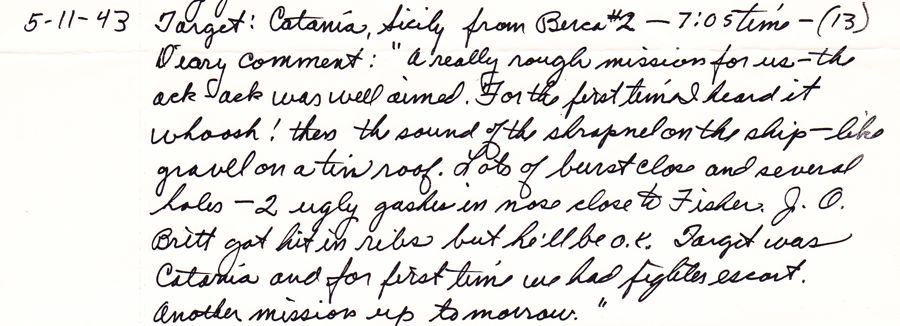 5-11-43 Target: Catania, Sicily from Berca #2 — 7:05 time — (13)
Diary comment: "A really rough mission for us — the
ack-ack was well aimed. For the first time I heard it
whoosh! then the sound of the shrapnel on the ship — like
gravel on a tin roof. Lots of burst close and several
holes — 2 ugly gashes in nose close to Fisher. J. O.
Britt got hit in ribs but he'll be o.k. Target was
Catania and for first time we had fighter escort.
Another mission up tomorrow."